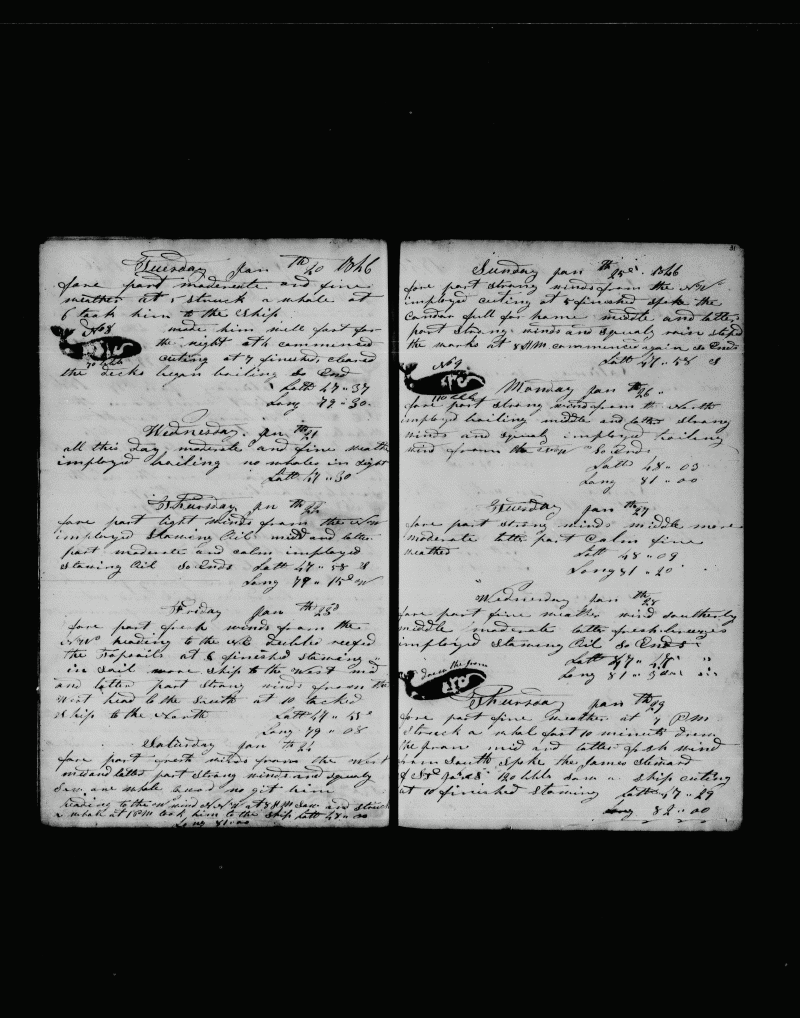 Tuesday Jan th 20 1846
fore part moderate and fine
weather at 1 struck a whale at
6 took him to the Ship
No 8 made him well fast for
the night at 4 commenced
70 bbls cuting at 7 finished cleared
the decks began boiling So End
Latt 47 " 37
Long 79 " 30
Wednesday Jan th 21
all this day moderate and fine weather
imployed boiling no whales in sight
Latt 47 " 30
Thursday Jan th 22
fore part light winds from the NW
imployed Stowing Oil midd and latter
part moderate and calm imployed
Stowing Oil So Ends Latt 47 " 58 S
Long 79 " 15 W
Friday Jan th 23
fore part fresh winds from the
heading to the NE Dubble reefed
the topsails at 6 finished stowing
in sail wore Ship to the West mid
and latter part Strong winds from the
West head to the South at 10 tacked
Ship to the North Latt 47 " 43
Long 79 " 08
Saturday Jan th 24
fore part fresh winds from the West
mid and latter part Strong winds and squaly
Saw one whale lowed no git him
heading to the W wind at 8 AM Saw and Struck
a whale at 1 PM took him to the Ship Latt 48 " 00
Long 81 " 00
31
Sunday Jan th 25 1846
fore part strong winds from the NW
imployed cuting at 5 finished Spoke the
Condor full for home middle and latter
part Strong winds and squaly rain stoped
the works at 8 AM commenced again So Ends
No 9 Latt 47 " 58 S
Monday Jan th 26
110 bbls
fore part strong winds from th North
imployed boiling middle and latter Strong
winds and squaly imployed boiling
wind from the So Ends
Latt 48 " 03
Long 81 " 00
Tuesday Jan th 27
fore part strong winds middle more
moderate latter part Calm fine
weather Latt 48 " 09
Long 81 " 20
Wednesday Jan th 28
fore part fine weather wind southerly
middle moderate latter fresh breezes
imployed Stowing Oil So Ends
Latt 47 " 48
Long 81 " 30
drew the iron
Thursday Jan th 29
fore part fine weather at 7 PM
Struck a whal fast 10 minuts drew
the iron mid and latter fresh wind
from South Spoke the James Steward
of St 120 bbls saw a ship cuting
at 10 finished Stowing Latt 47 " 29
Long 82 " 00